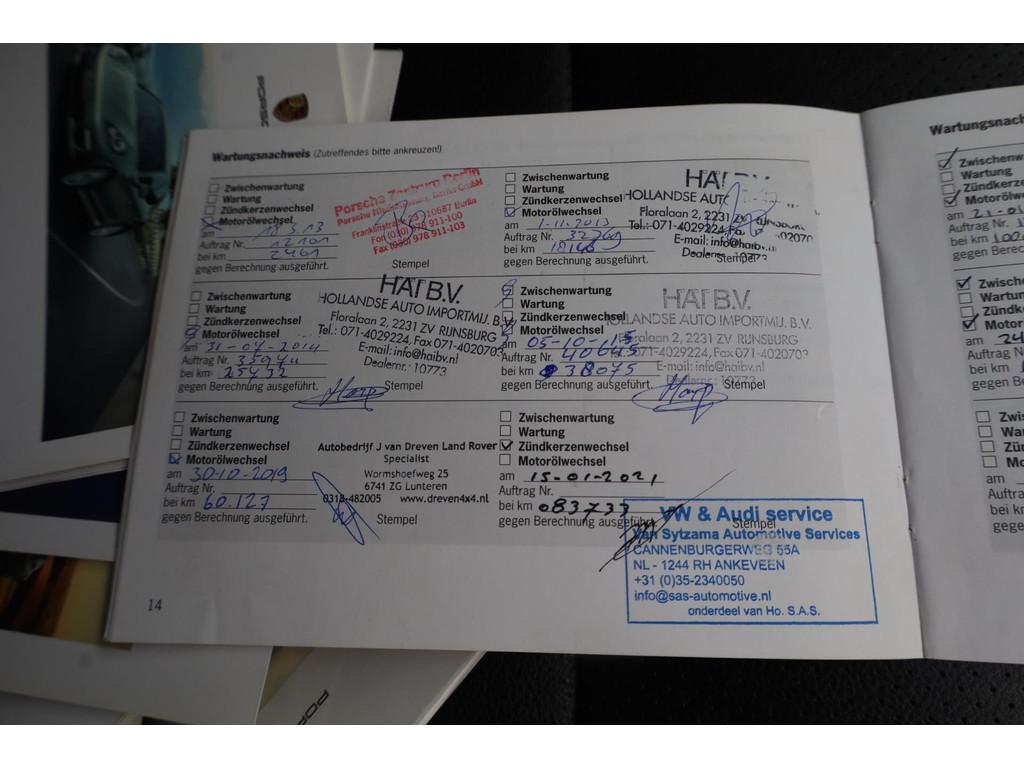 Wartungsnachweis (Zutreffendes bitte ankreuzen!)
Zwischenwartung
Wartung
Zündkerzenwechsel
Motorölwechsel
am 18.3.13
Auftrag Nr. 12101
bei km 2461
gegen Berechnung ausgeführt.
Porsche Zentrum Berlin
10587 Berlin
Fon (030) 978 911-100
Fax (030) 978 911-103
Stempel
Zwischenwartung
Wartung
Zündkerzenwechsel
Motorölwechsel
am 1-11-2013
Auftrag Nr. 32769
bei km
gegen Berechnung ausgeführt.
HOLLANDSE AUTO
Floralaan 2, 2231 ZV
Tel.: 071-4029224,
E-mail: info@haibv.nl
Dealernr.: 10773
Stempel
Zwischenwartung
Wartung
Zündkerzenwechsel
Motorölwechsel
am 31-07-2014
Auftrag Nr.
bei km 25432
gegen Berechnung ausgeführt.
HAI B.V.
HOLLANDSE AUTO IMPORTMIJ. B.V.
Floralaan 2, 2231 ZV RIJNSBURG
Tel.: 071-4029224, Fax 071-4020703
E-mail: info@haibv.nl
Dealernr.: 10773
Stempel
Zwischenwartung
Wartung
Zündkerzenwechsel
Motorölwechsel
am 05-10-15
Auftrag Nr. 40645
bei km 38075
gegen Berechnung ausgeführt.
HAI B.V.
HOLLANDSE AUTO IMPORTMIJ. B.V.
Floralaan 2, 2231 ZV RIJNSBURG
071-4029224, Fax 071-4020703
E-mail: info@haibv.nl
Dealernr.: 10773
Stempel
Zwischenwartung
Wartung
Zündkerzenwechsel
Motorölwechsel
am 30-10-2019
Auftrag Nr.
bei km 60.127
gegen Berechnung ausgeführt.
Autobedrijf J van Dreven Land Rover
Specialist
Wormshoefweg 25
6741 ZG Lunteren
0318-482005 www.dreven4x4.nl
Stempel
Zwischenwartung
Wartung
Zündkerzenwechsel
Motorölwechsel
am 15-01-2021
Auftrag Nr.
bei km 083733
gegen Berechnung ausgeführt.
Stempel
VW & Audi service
Van Sytzama Automotive Services
CANNENBURGERWEG 55A
NL - 1244 RH ANKEVEEN
+31 (0)35-2340050
info@sas-automotive.nl
onderdeel van Ho. S.A.S.
14